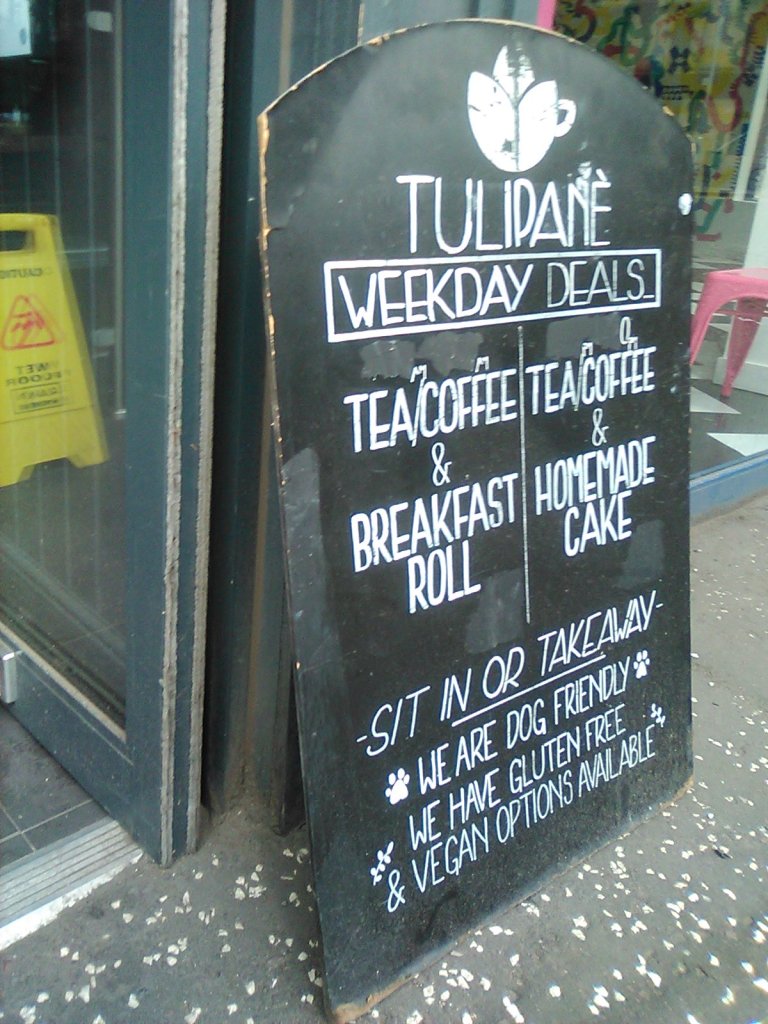 TULIPANÈ
WEEKDAY DEALS
TEA/COFFEE
&
BREAKFAST
ROLL
TEA/COFFEE
&
HOMEMADE
CAKE
-SIT IN OR TAKEAWAY-
WE ARE DOG FRIENDLY
WE HAVE GLUTEN FREE
& VEGAN OPTIONS AVAILABLE
CAUTION
WET
FLOOR